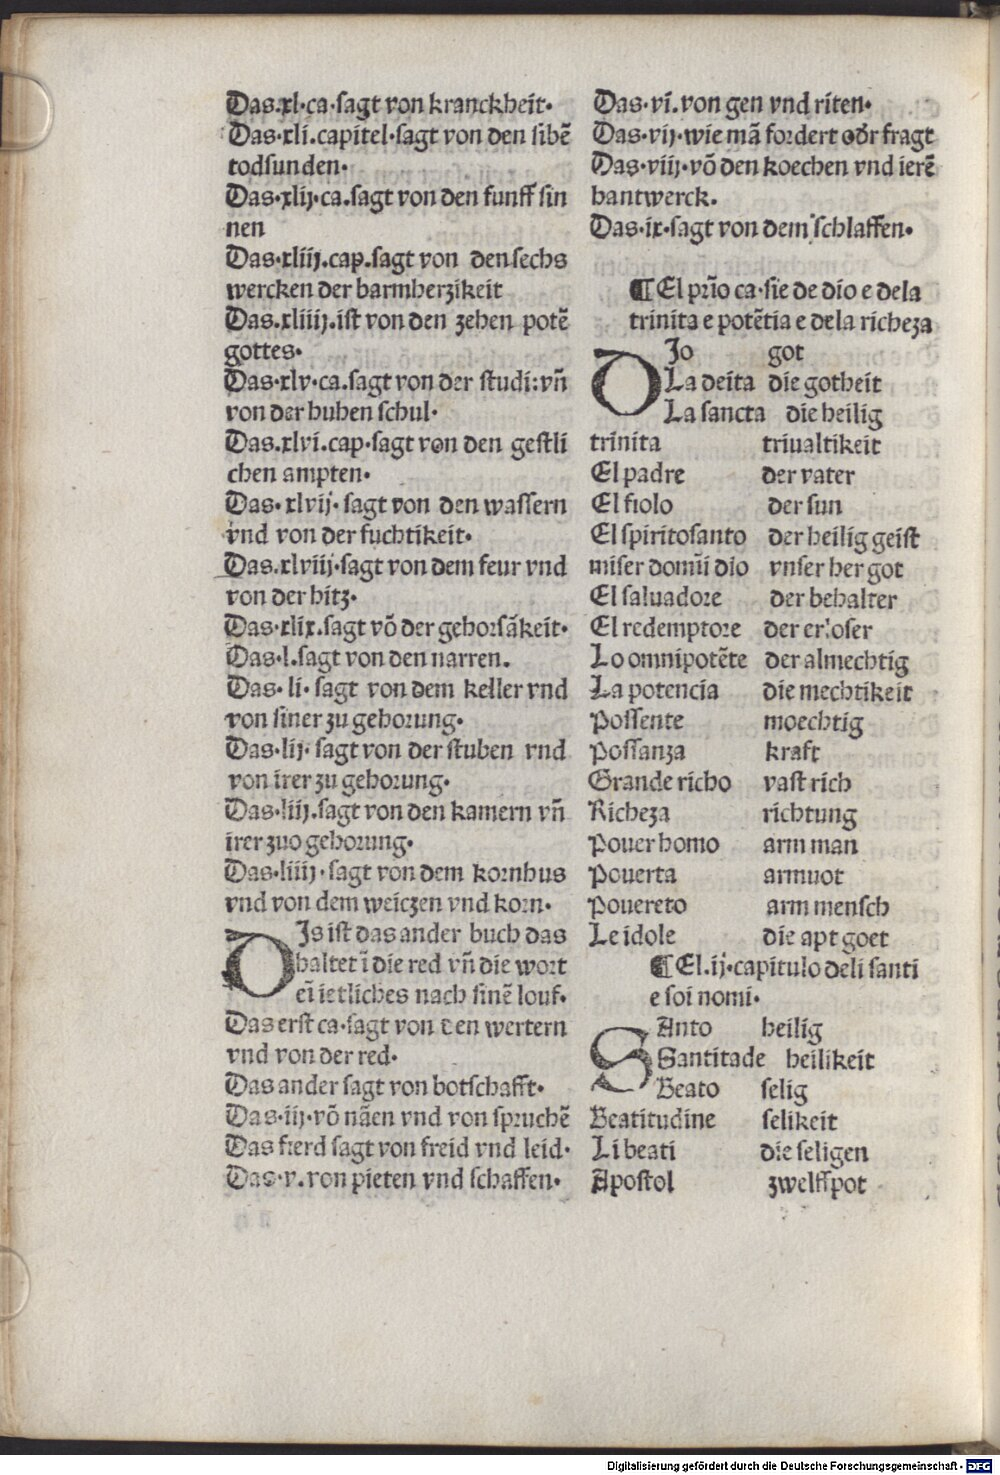 Das.xl.ca.sagt von kranckheit.
Das.xli.capitel.sagt von den sibē
todsunden.
Das.xlij.ca.sagt von den funff sin
nen
Das.xliij.cap.sagt von den sechs
wercken der barmherzikeit
Das.xliiij.ist von den zehen potē
gottes.
Das.xlv.ca.sagt von der studi:vn̄
von der buben schul.
Das.xlvi.cap.sagt von den gestli
chen ampten.
Das.xlvij.sagt von den wassern
vnd von der fuchtikeit.
Das.xlviij.sagt von dem feur vnd
von der hitz.
Das.xlix.sagt vō der gehorsākeit.
Das.l.sagt von den narren.
Das.li.sagt von dem keller vnd
von siner zu gehorung.
Das.lij.sagt von der stuben vnd
von irer zu gehorung.
Das.liij.sagt von den kamern vn̄
irer zuo gehorung.
Das.liiij.sagt von dem kornhus
vnd von dem weiczen vnd korn.
DIs ist das ander buch das
haltet ī die red vn̄ die wort
eī ietliches nach sinē louf.
Das erst ca.sagt von den wertern
vnd von der red.
Das ander sagt von botschafft.
Das.iij.vō nāen vnd von spruchē
Das fierd sagt von freid vnd leid.
Das.v.von pieten vnd schaffen.
Das.vi.von gen vnd riten.
Das.vij.wie mā fordert oðr fragt
Das.viij.vō den koechen vnd ierē
hantwerck.
Das.ix.sagt von dem schlaffen.
¶ El prīo ca.sie de dio e dela
trinita e potētia e dela richeza
DIo got
La deita die gotheit
La sancta die heilig
trinita triualtikeit
El padre der vater
El fiolo der sun
El spiritosanto der heilig geist
miser domīi dio vnser her got
El saluadore der behalter
El redemptore der erloser
Lo omnipotēte der almechtig
La potencia die mechtikeit
Possente moechtig
Possanza kraft
Grande richo vast rich
Richeza richtung
Pouer homo arm man
Pouerta armuot
Pouereto arm mensch
Le idole die apt goet
¶ El.ij.capitulo deli santi
e soi nomi.
SAnto heilig
Santitade heilikeit
Beato selig
Beatitudine selikeit
Li beati die seligen
Apostol zwelffpot
Digitalisierung gefördert durch die Deutsche Forschungsgemeinschaft - DFG